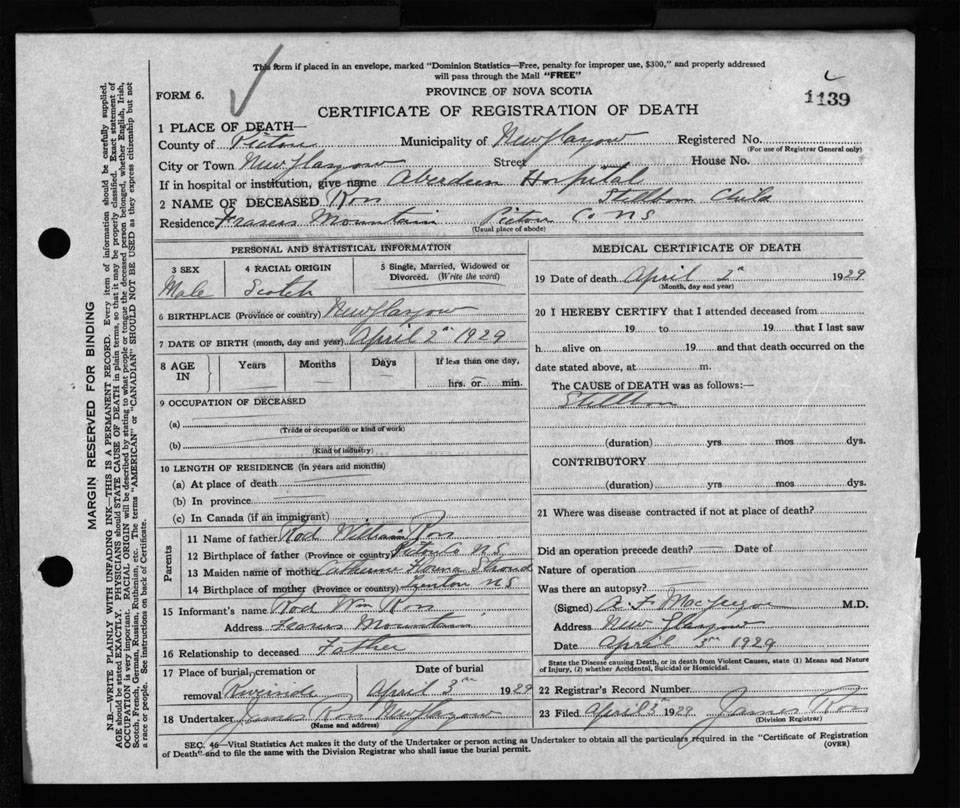 This form if placed in an envelope, marked "Dominion Statistics—Free, penalty for improper use, $300," and properly addressed
will pass through the Mail "FREE"
FORM 6.
PROVINCE OF NOVA SCOTIA
1139
CERTIFICATE OF REGISTRATION OF DEATH
1 PLACE OF DEATH—
County of Pictou Municipality of New Glasgow Registered No.
(For use of Registrar General only)
City or Town New Glasgow Street House No.
If in hospital or institution, give name Aberdeen Hospital
2 NAME OF DECEASED Ross Stillborn Child
Residence Frasers Mountain Pictou Co NS
(Usual place of abode)
PERSONAL AND STATISTICAL INFORMATION
3 SEX 4 RACIAL ORIGIN 5 Single, Married, Widowed or Divorced. (Write the word)
Male Scotch
6 BIRTHPLACE (Province or country) New Glasgow
7 DATE OF BIRTH (month, day and year) April 2nd 1929
8 AGE IN Years Months Days If less than one day,
hrs. or min.
9 OCCUPATION OF DECEASED
(a)
(Trade or occupation or kind of work)
(b)
(Kind of industry)
10 LENGTH OF RESIDENCE (in years and months)
(a) At place of death
(b) In province
(c) In Canada (if an immigrant)
Parents
11 Name of father Rod William Ross
12 Birthplace of father (Province or country) Pictou Co NS
13 Maiden name of mother Catherine
14 Birthplace of mother (Province or country) NS
15 Informant's name Rod Wm Ross
Address Frasers Mountain
16 Relationship to deceased Father
17 Place of burial, cremation or Date of burial
removal Riverside April 3rd 1929
18 Undertaker James Ross New Glasgow
(Name and address)
MEDICAL CERTIFICATE OF DEATH
19 Date of death April 2nd 1929
(Month, day and year)
20 I HEREBY CERTIFY that I attended deceased from
19 to 19 that I last saw
h alive on 19 and that death occurred on the
date stated above, at m.
The CAUSE OF DEATH was as follows:—
Stillborn
(duration) yrs mos dys.
CONTRIBUTORY
(duration) yrs mos dys.
21 Where was disease contracted if not at place of death?
Did an operation precede death? Date of
Nature of operation
Was there an autopsy?
(Signed) A F MacGregor M.D.
Address New Glasgow
Date April 5th 1929
State the Disease causing Death, or in death from Violent Causes, state (1) Means and Nature
of Injury, (2) whether Accidental, Suicidal or Homicidal.
22 Registrar's Record Number
23 Filed April 5th 1929 James Ross
(Division Registrar)
SEC. 46—Vital Statistics Act makes it the duty of the Undertaker or person acting as Undertaker to obtain all the particulars required in the "Certificate of Registration
of Death" and to file the same with the Division Registrar who shall issue the burial permit.
(OVER)
MARGIN RESERVED FOR BINDING
N.B.—WRITE PLAINLY WITH UNFADING INK—THIS IS A PERMANENT RECORD. Every item of information should be carefully supplied.
AGE should be stated EXACTLY. PHYSICIANS should STATE CAUSE OF DEATH in plain terms, so that it may be properly classified. Exact statement of
OCCUPATION is very important. RACIAL ORIGIN will be described by stating to what people or tongue the deceased person belonged, whether English, Irish,
Scotch, French, German, Russian, Ruthenian, etc. The terms "AMERICAN" or "CANADIAN" SHOULD NOT BE USED as they express citizenship but not
a race or people. See instructions on back of Certificate.